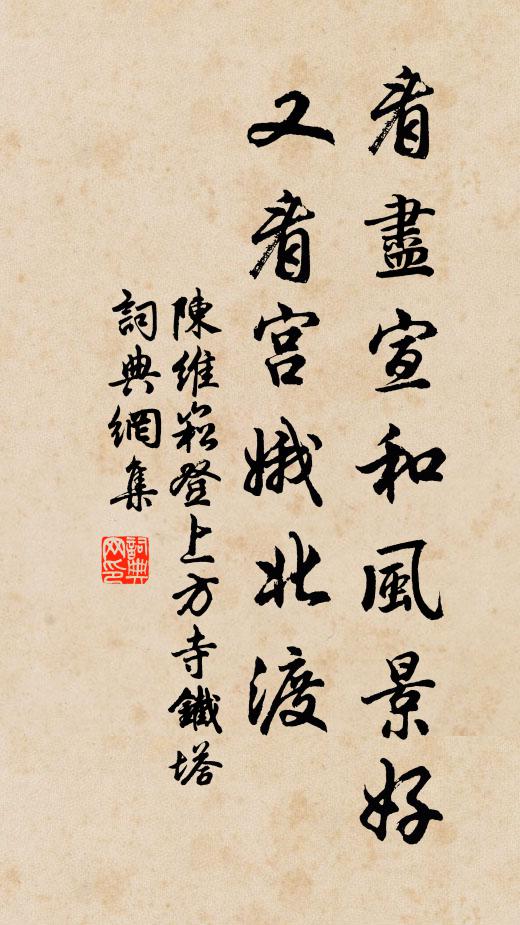 看盡宣和風景好
又看宮娥北渡
陳維崧登上方寺鐵塔
詞典網集
詞典网印